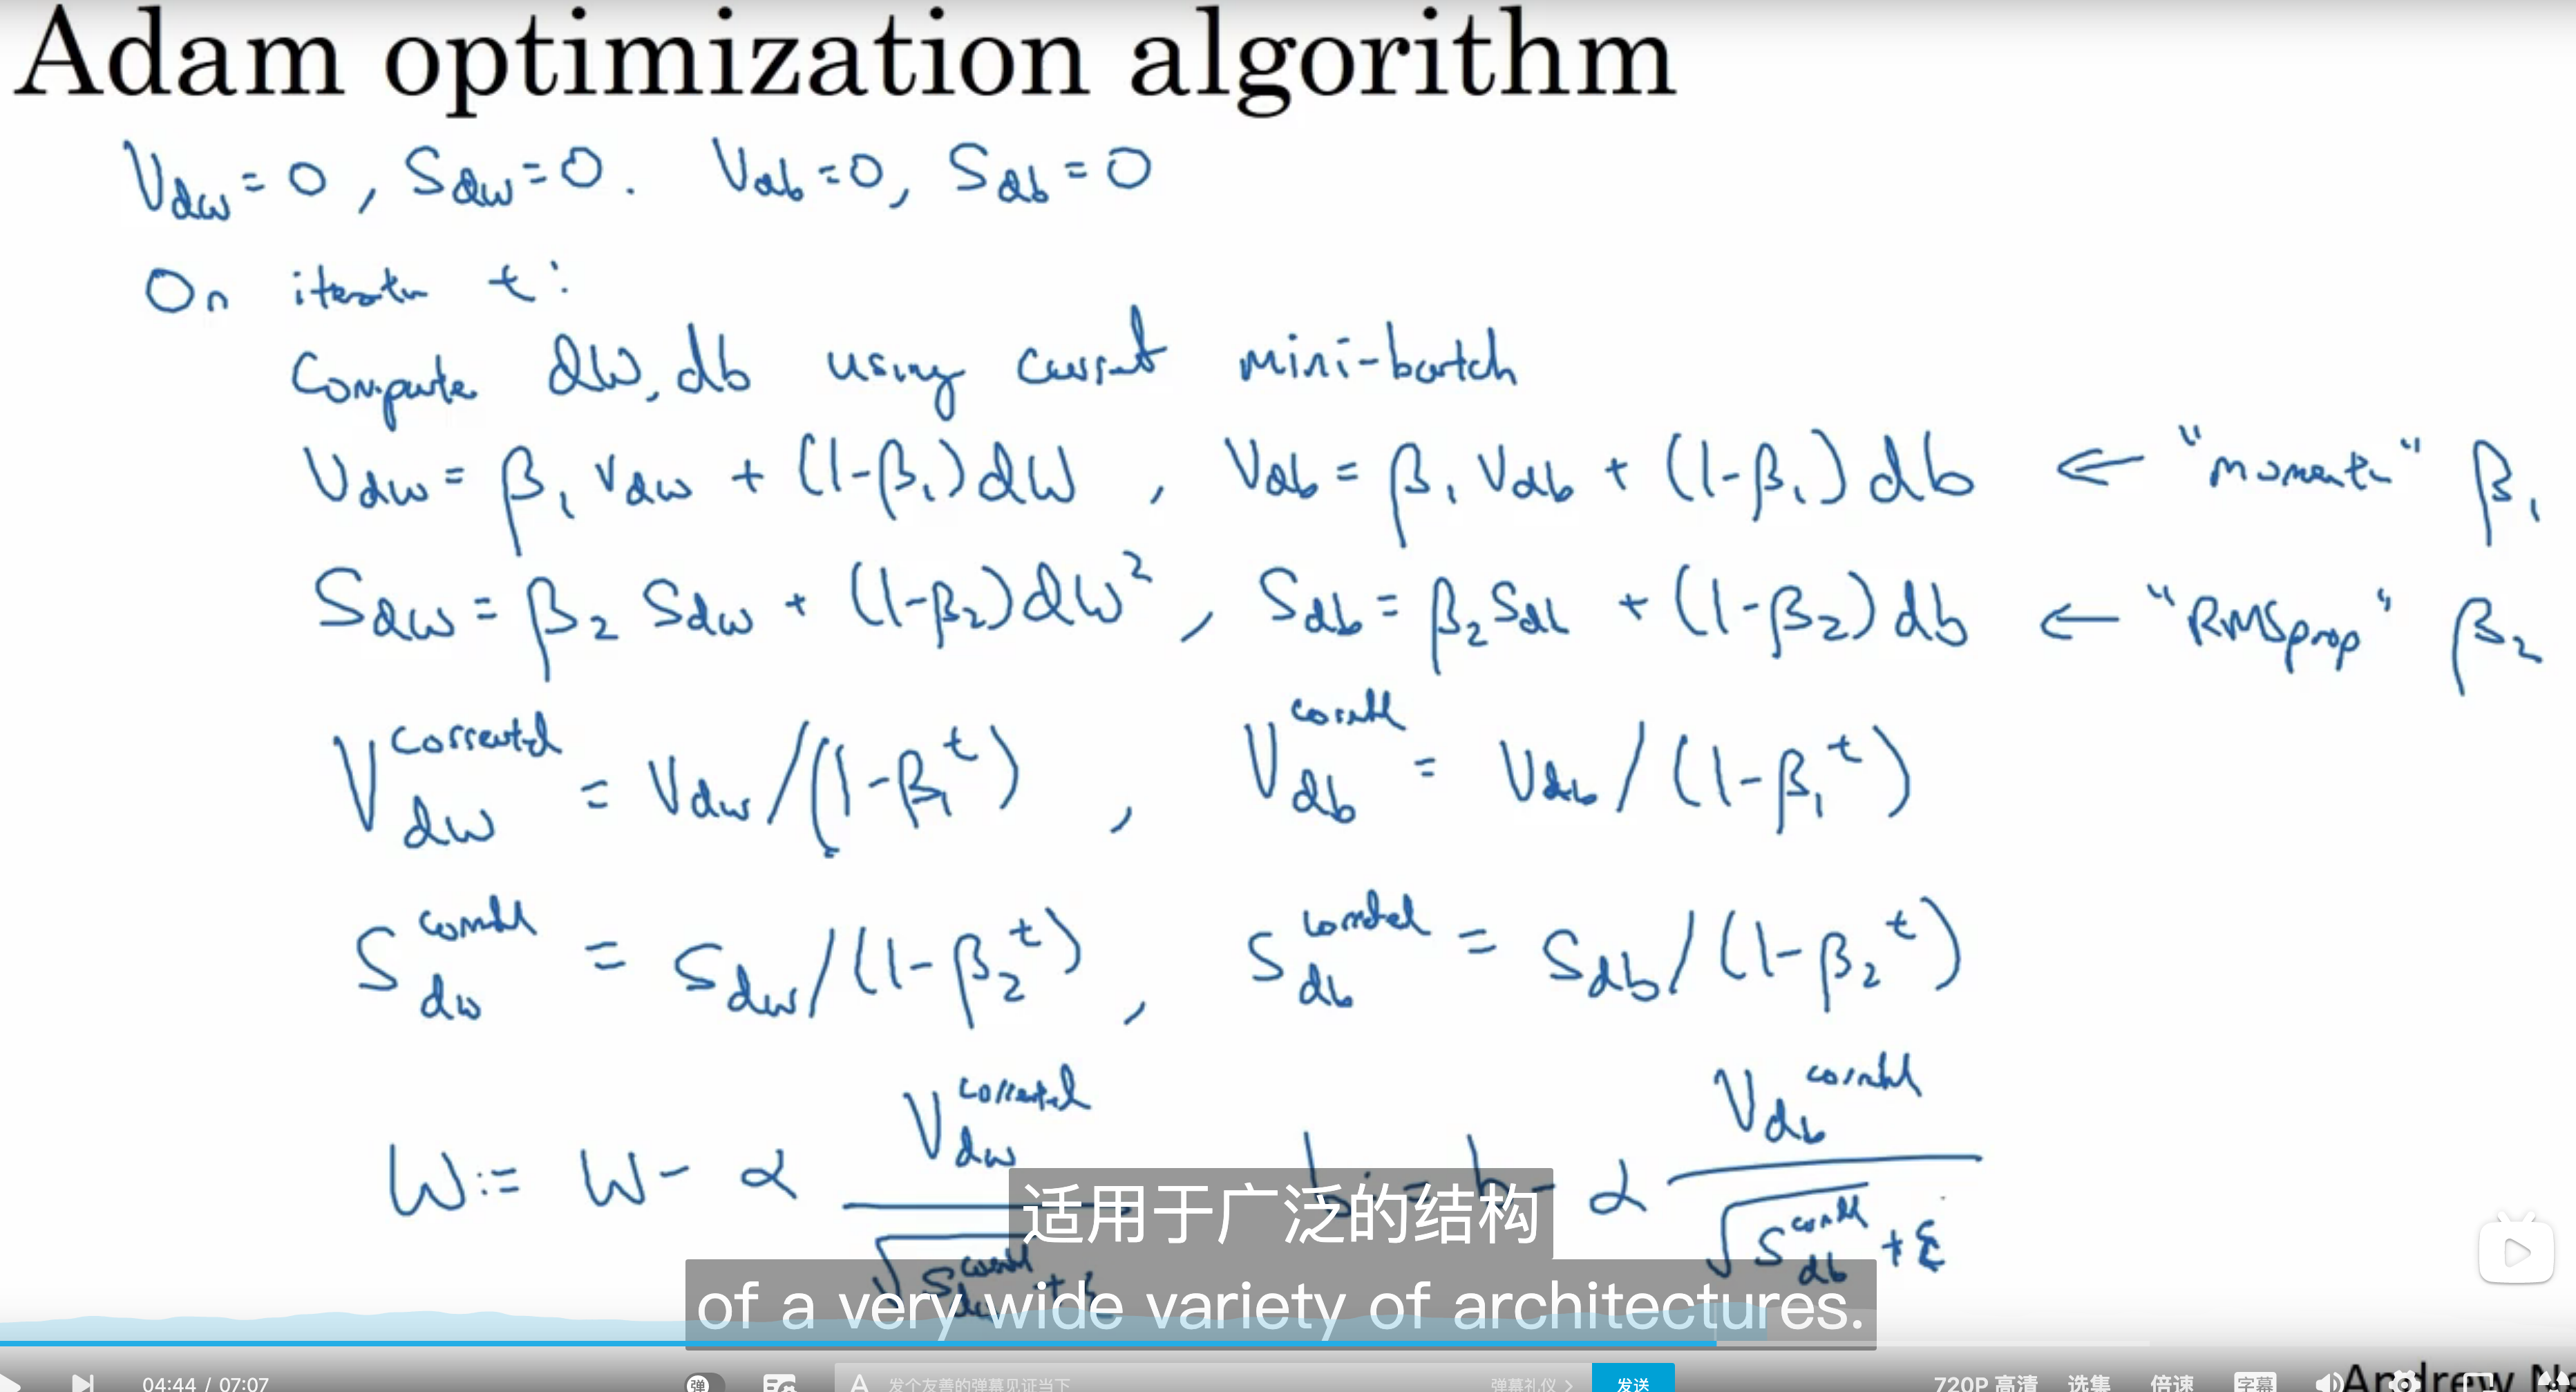 Adam optimization algorithm
V_dw = 0, S_dw = 0. V_db = 0, S_db = 0
On iteratn t:
Compute dW, db using current mini-batch
V_dw = β₁ V_dw + (1-β₁) dW , V_db = β₁ V_db + (1-β₁) db ← "momentn" β₁
S_dw = β₂ S_dw + (1-β₂) dW² , S_db = β₂ S_db + (1-β₂) db ← "RMSprop" β₂
V_dw^corrected = V_dw / (1-β₁^t) , V_db^corrected = V_db / (1-β₁^t)
S_dw^corrected = S_dw / (1-β₂^t) , S_db^corrected = S_db / (1-β₂^t)
W := W - α V_dw^corrected / √S_dw^corrected + ε b := b - α V_db^corrected / √S_db^corrected + ε
适用于广泛的结构
of a very wide variety of architectures.
04:44 / 07:07 弹 发个友善的弹幕见证当下 弹幕礼仪 > 发送 720P 高清 选集 倍速 字幕
Andrew N